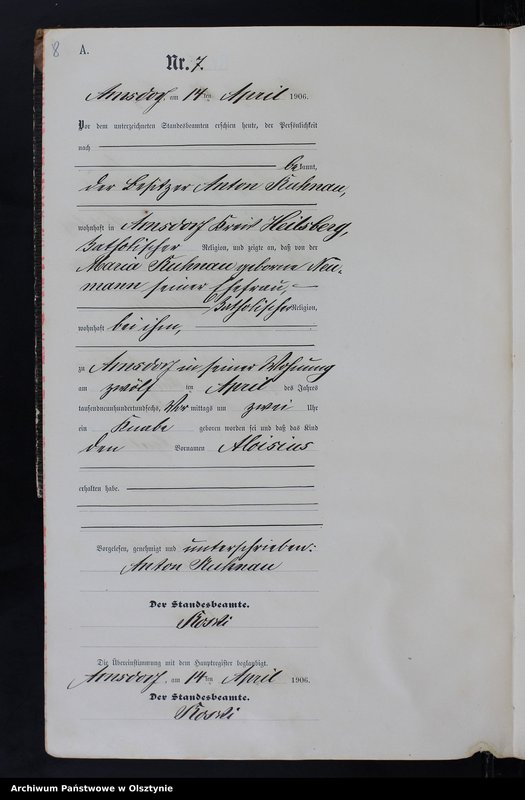 8
A.
Nr. 7.
Arnsdorf, am 14ten April 1906.
Vor dem unterzeichneten Standesbeamten erschien heute, der Persönlichkeit
nach
bekannt,
der Besitzer Anton Kuhnau,
wohnhaft in Arnsdorf Kreis Heilsberg,
katholischer Religion, und zeigte an, daß von der
Maria Kuhnau geborne Neu-
mann, seiner Ehefrau,
katholischer Religion,
wohnhaft bei ihm,
zu Arnsdorf in seiner Wohnung
am zwölf ten April des Jahres
tausendneunhundertundsechs, Vor mittags um zwei Uhr
ein Knabe geboren worden sei und daß das Kind
den Vornamen Aloisius
erhalten habe.
Vorgelesen, genehmigt und unterschrieben:
Anton Kuhnau
Der Standesbeamte.
Die Übereinstimmung mit dem Hauptregister beglaubigt.
Arnsdorf, am 14ten April 1906.
Der Standesbeamte.
Archiwum Państwowe w Olsztynie